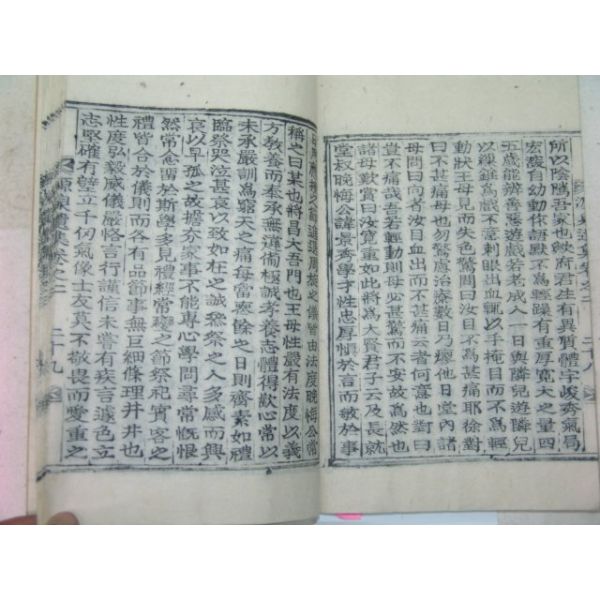 所以陰隲吾家也府君生有異質體宇峻秀氣局
宏濶自幼動作語默不爲輕躁有重厚寬大之量四
五歲能辨善惡遊戱若老成人一日與隣兒遊隣兒
以綠錐爲戱不意刺眼血出以手掩目而不爲輕
動狀王母見而失色驚問曰汝目不爲甚痛耶徐對
曰不甚痛也勿驚憂治療數日乃瘳他日堂內諸
母問曰向者汝目血出而不甚痛云者何意也對曰
豈不痛哉吾若輕動則母必甚驚而不安故也
諸母歎賞曰汝寬重如此將爲大賢君子云及長就
堂叔晩悔公諱景秀學才性忠厚愼於言而敏於事
進退周旋之儀皆由法度晩悔公常
稱之曰某也將昌大吾門也王母性嚴有法度以義
方敎養而奉承無違備極誠孝養志體得歡心常以
未承嚴訓爲窮天之痛每當應餘之日則齋素如禮
臨祭哭泣甚哀以致如在之誠參祭之人多感而興
哀以早孤之故擔夯家事不能專心學問尋常慨恨
然常念留於斯學多見禮經常變之節祭祀賓客之
禮皆合於儀則而各有品節事無巨細條理井井也
性度弘毅威儀嚴恪言行謹信未嘗有疾言遽色立
志堅確有壁立千仞氣象士友莫不敬畏而愛重之
卷之二 二十九